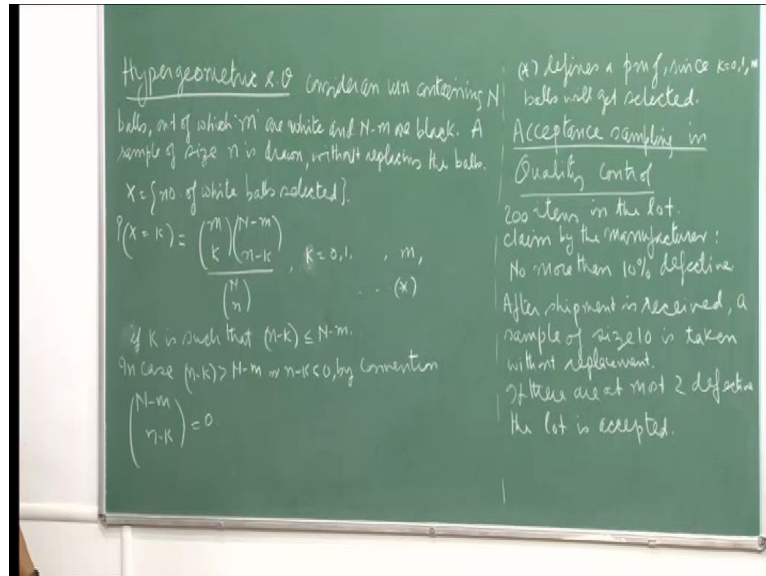 Hypergeometric R.V Consider an urn containing N
balls, out of which 'm' are white and N-m are black. A
sample of size n is drawn, without replacing the balls.
X = {no. of white balls selected}.
P(X = K) = \frac{\binom{m}{K}\binom{N-m}{n-K}}{\binom{N}{n}}, K = 0, 1, , m, .. (*)
if K is such that (n-K) ≤ N-m.
In case (n-K) > N-m or n-K < 0, by convention
\binom{N-m}{n-K} = 0.
(*) defines a pmf, since K=0,1, m
balls will get selected.
Acceptance sampling in
Quality control
200 items in the lot.
claim by the manufacturer:
No more than 10% defective
After shipment is received, a
sample of size 10 is taken
without replacement.
If there are at most 2 defective
the lot is accepted.